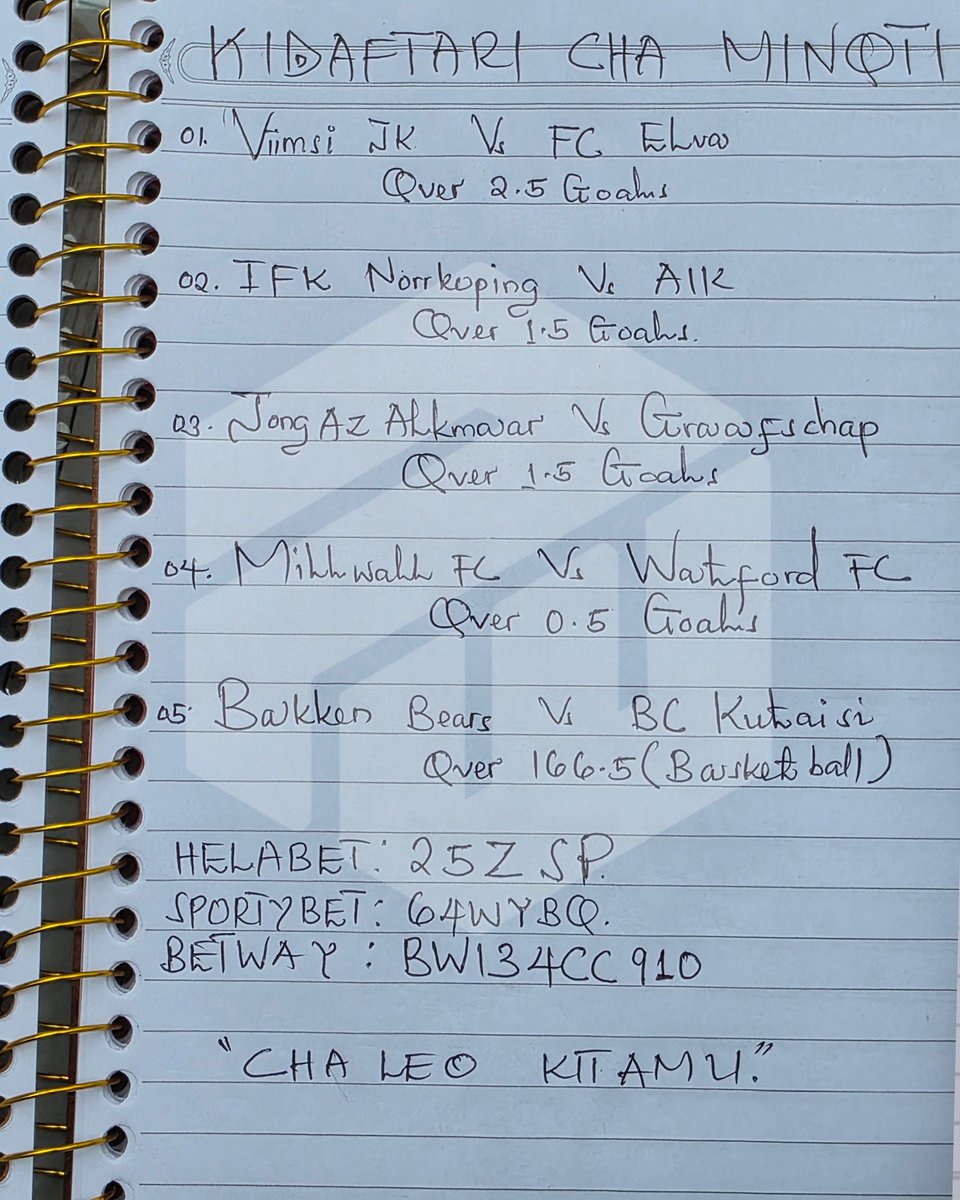 KIDAFTARI CHA MINOTI
01. Viimsi JK Vs FC Elva
Over 2.5 Goals
02. IFK Norrkoping Vs AIK
Over 1.5 Goals.
03. Jong AZ Alkmaar Vs Graafschap
Over 1.5 Goals
04. Millwall FC Vs Watford FC
Over 0.5 Goals
05. Bakken Bears Vs BC Kutaisi
Over 166.5 (Basketball)
HELABET: 25ZSP.
SPORTYBET: 64WYBQ.
BETWAY: BW134CC910
"CHA LEO KITAMU."